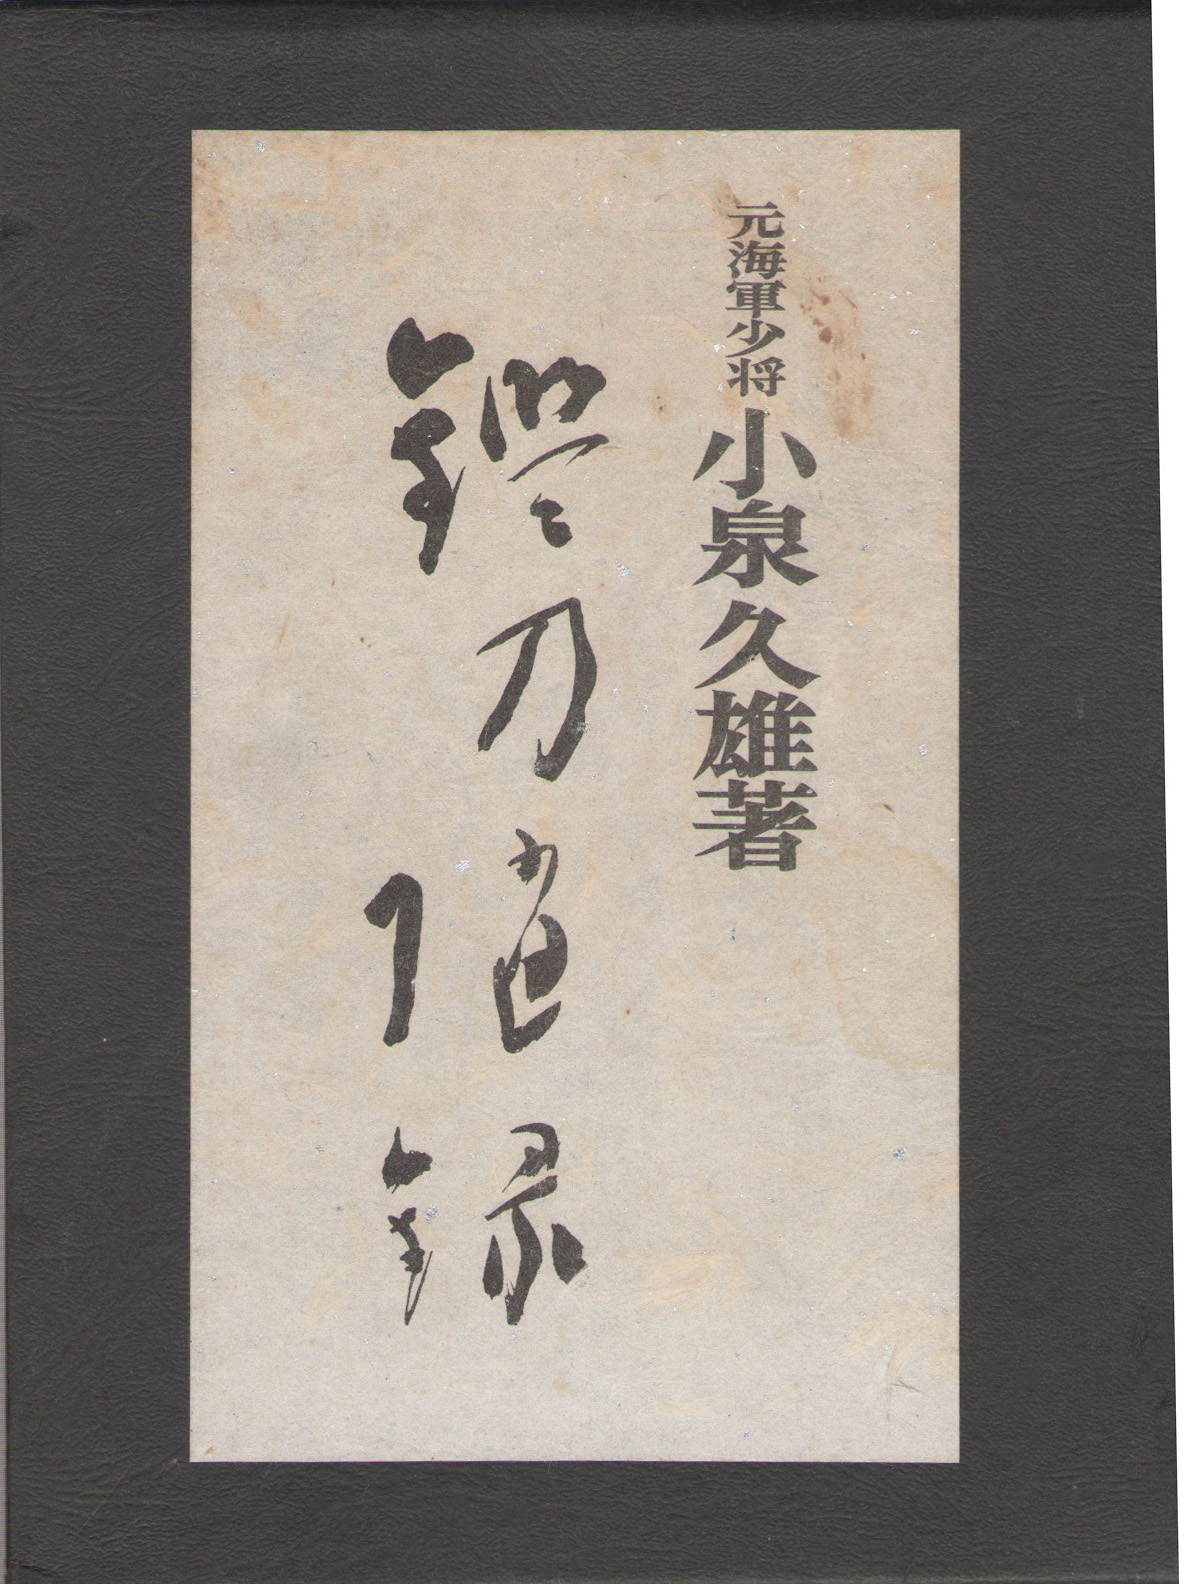 元海軍少将 小泉久雄著
鑑刀随録